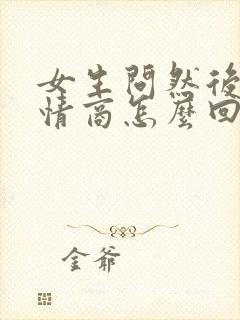 女生問然後
情商怎麼回
金爺